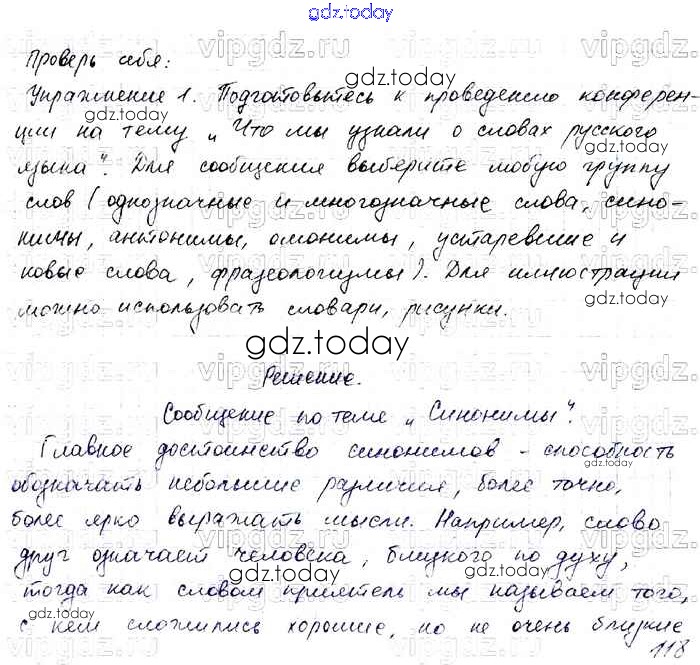 gdz.today
Проверь себя:
Упражнение 1. Подготовьтесь к проведению конферен-
ции на тему „Что мы узнали о словах русского
языка". Для сообщения выберите любую группу
слов (однозначные и многозначные слова, сино-
нимы, антонимы, омонимы, устаревшие и
новые слова, фразеологизмы). Для иллюстрации
можно использовать словари, рисунки.
gdz.today
Решение.
Сообщение по теме „Синонимы".
Главное достоинство синонимов - способность
обозначать небольшие различия, более точно,
более ярко выражать мысли. Например, слово
друг означает человека, близкого по духу,
тогда как словом приятель мы называем того,
с кем сложились хорошие, но не очень близкие
118